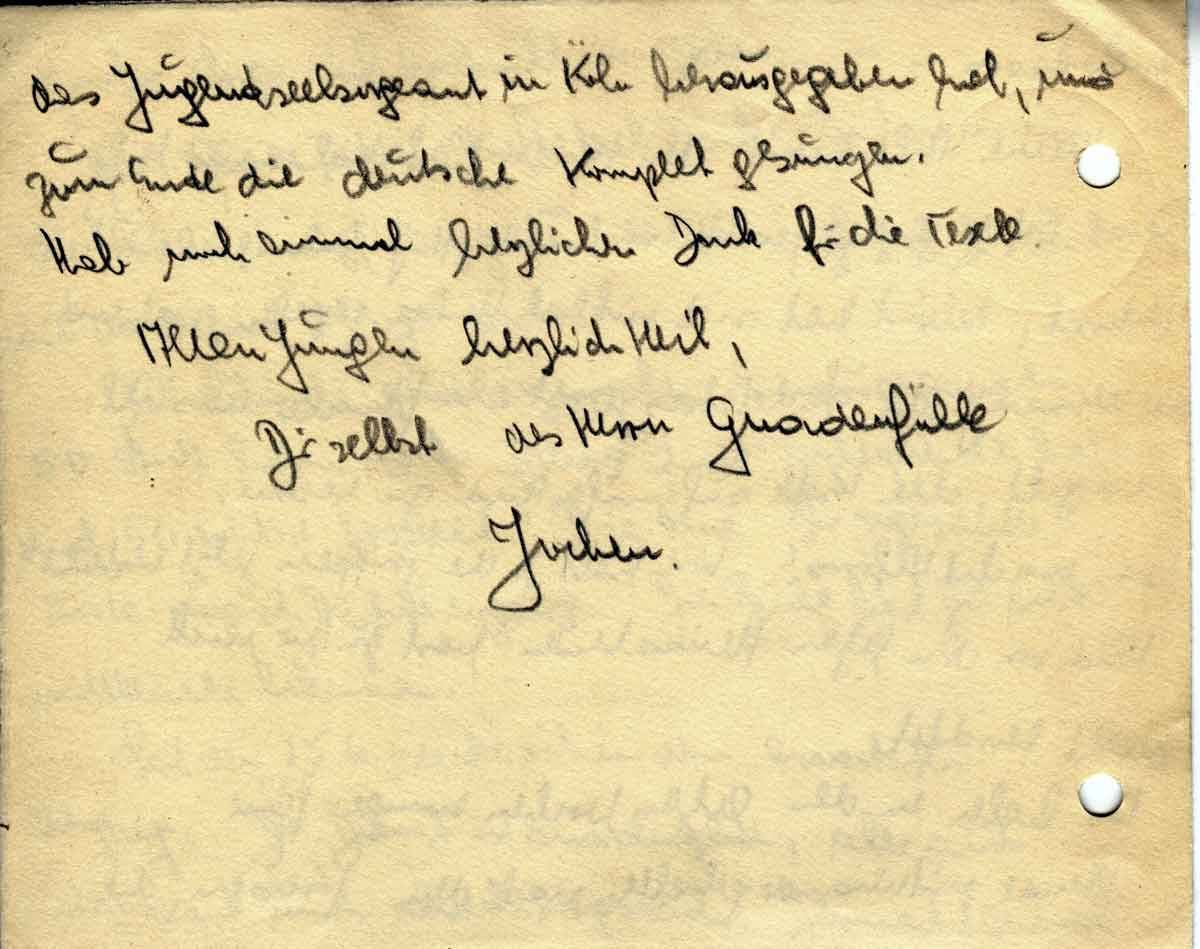 das Jugendseelsorgeamt in Köln herausgegeben hat, und
zum Ende die deutsche Komplet gesungen.
Hab noch einmal herzlichen Dank für die Texte.
Allen Jungen herzlich Heil,
Dir selbst des Herrn Gnadenfülle
Jochen.